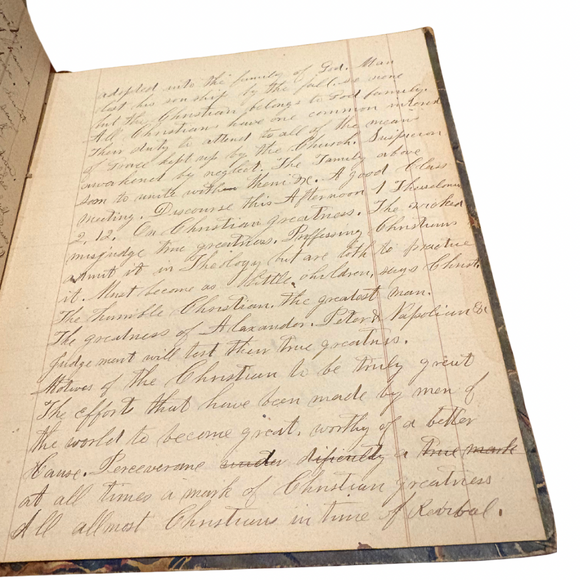 adopted into the family of God. Man
lost his sonship by the fall, so none
but the Christian belongs to God family.
All Christians have one common interest
Their duty to attend to all of the means
of Grace kept up by the Church. Suspicion
awakened by neglect. The Family above
soon to unite with them &c. A good Class
meeting. Discourse this Afternoon 1 Thessalons
2. 12. On Christian greatness. The wicked
misjudge true greatness. Professing Christians
admit it in Theology but are loth to practice
it. Must become as little children, says Christ.
The humble Christian, the greatest man.
The greatness of Alexander. Peter & Napoleon &c
Judgement will test their true greatness.
Motives of the Christian to be truly great
The efforts that have been made by men of
the world to become great. worthy of a better
Cause. Perceverane under a true mark
at all times a mark of Christian greatness
All allmost Christians in time of Revival.